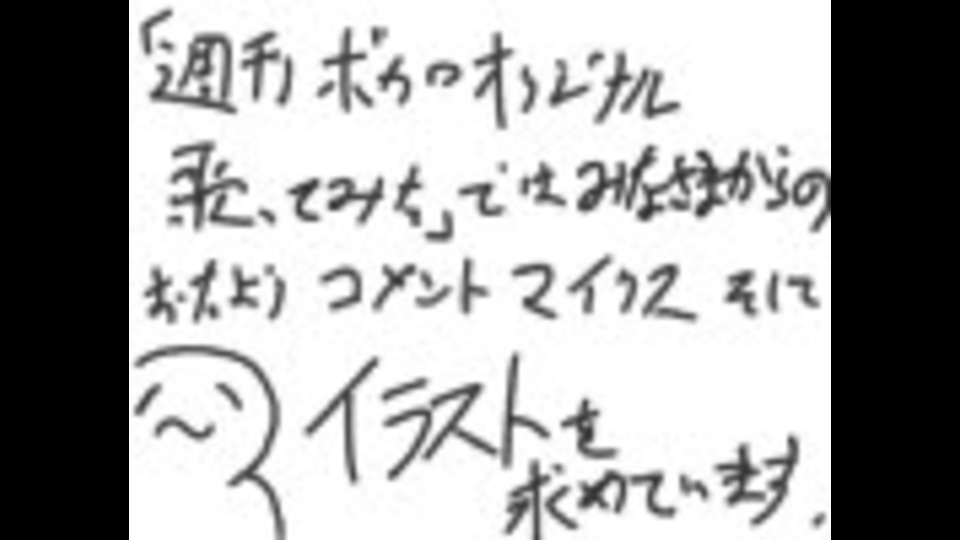 「週刊ボカロオリジナル
歌ってみた」ではみなさまからの
おたより コメント マイリス そして
イラストを
求めています.